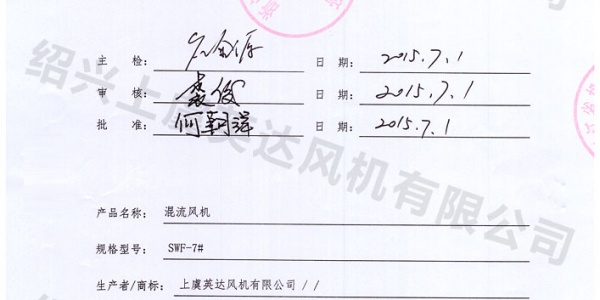 绍兴上虞英达风机有限公司
主 检: 日 期: 2015.7.1
审 核: 日 期: 2015.7.1
批 准: 日 期: 2015.7.1
产品名称: 混流风机
规格型号: SWF-7#
生产者/商标: 上虞英达风机有限公司 / /